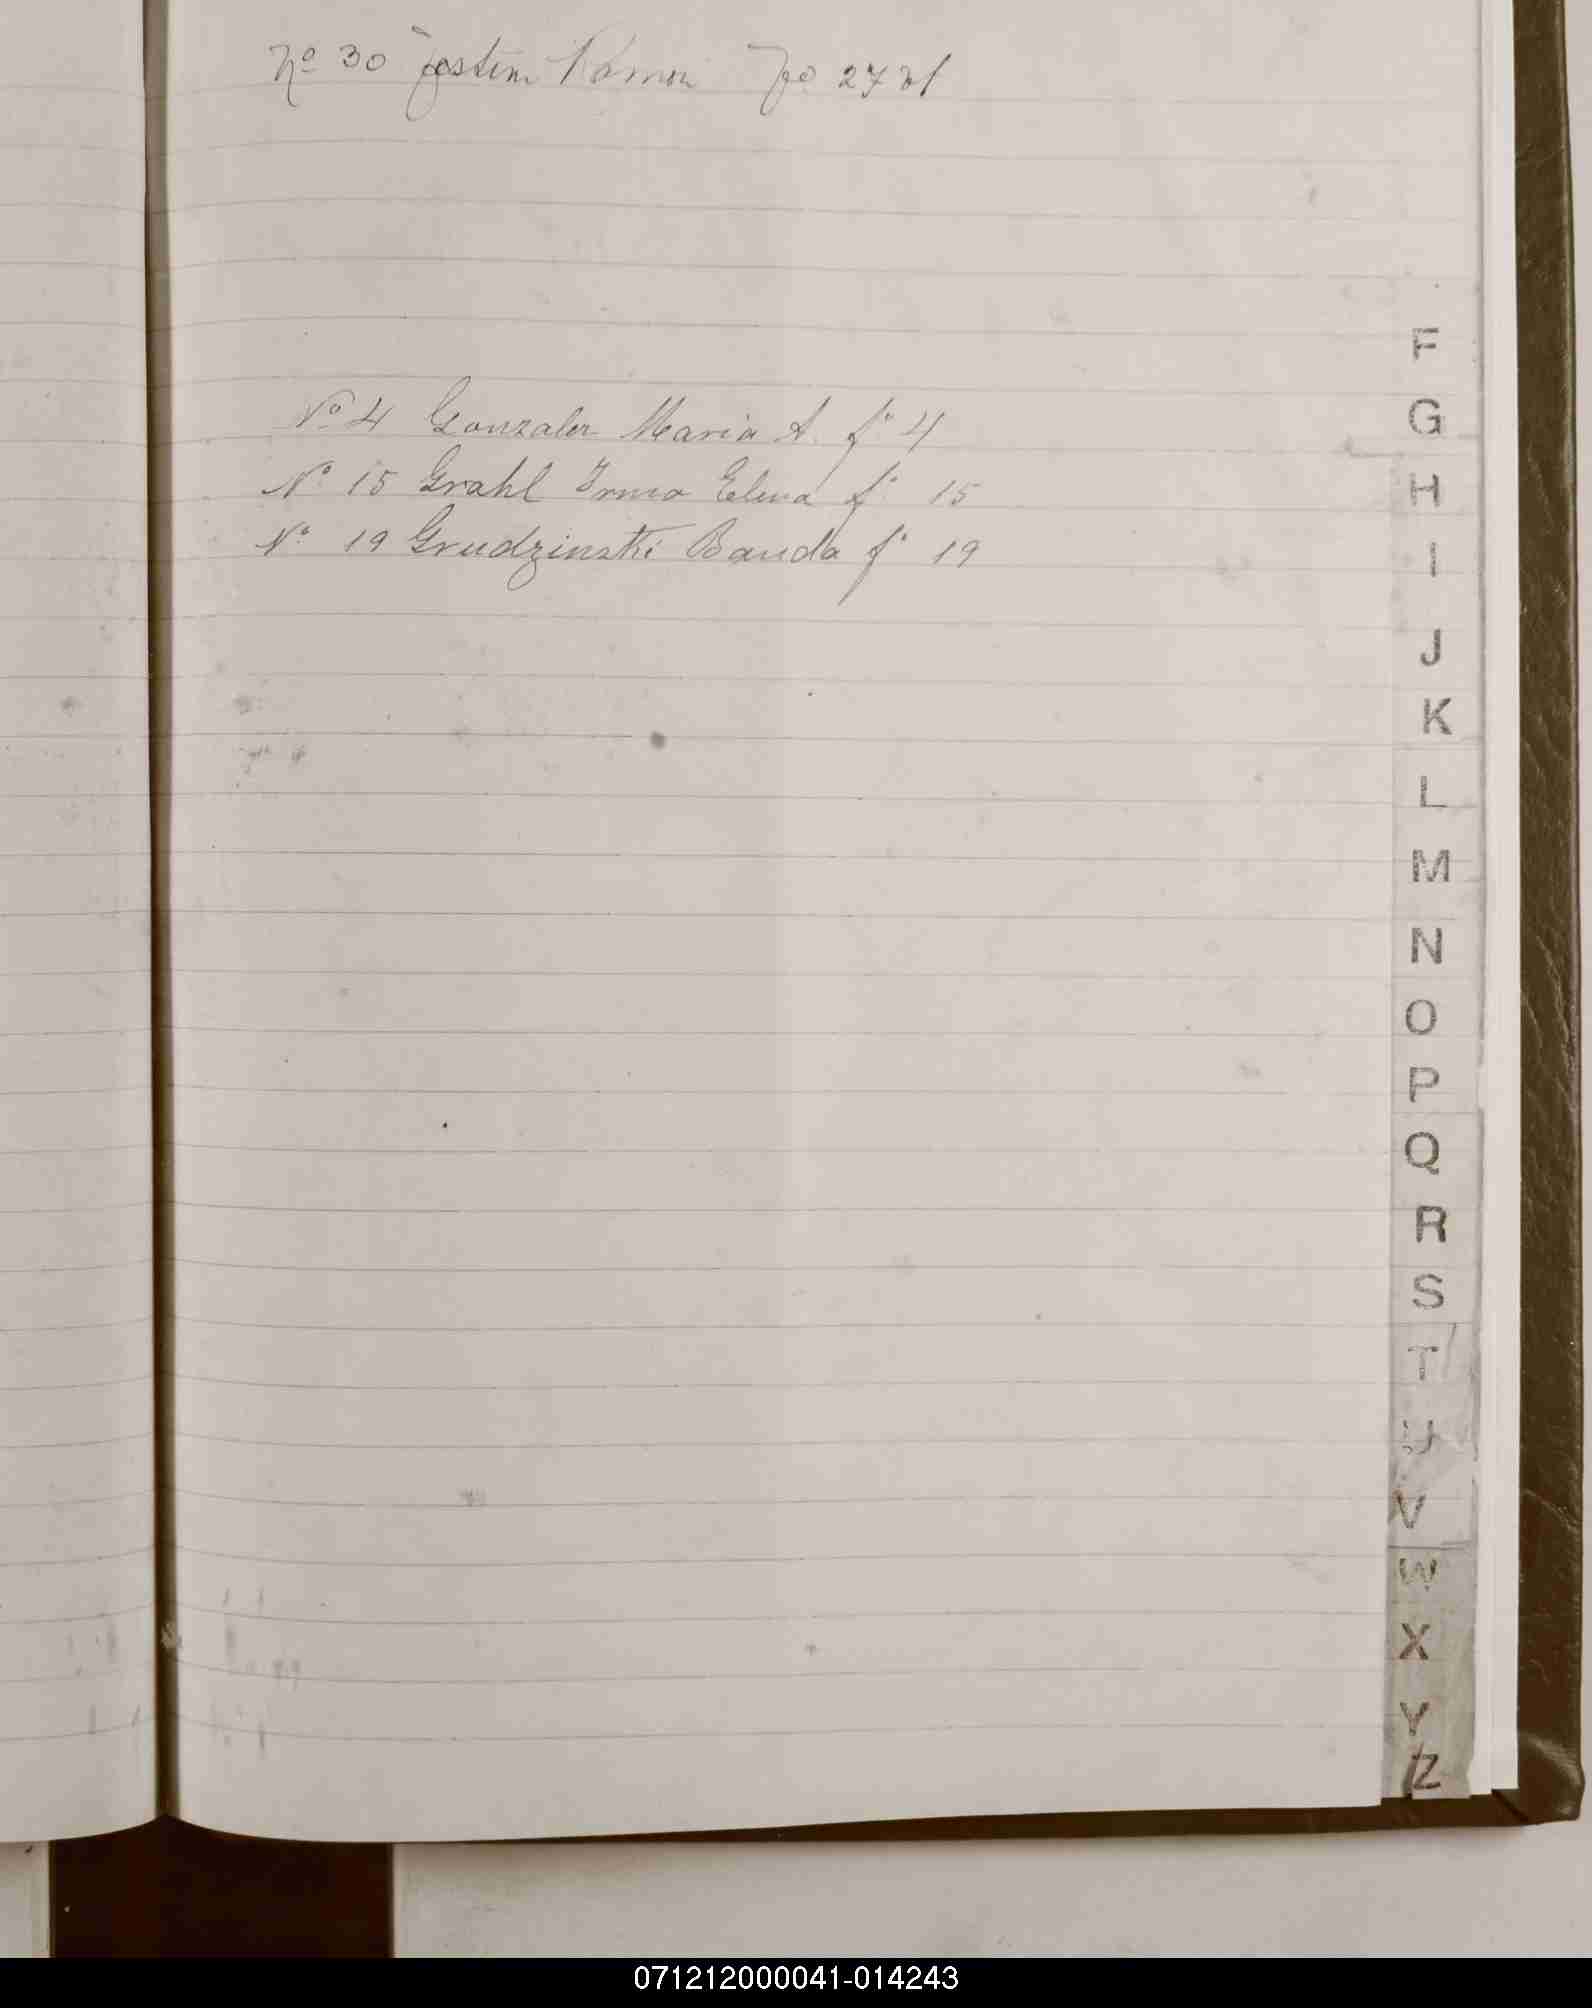 Nº 30 Ramon fº 27
Nº 4 Gonzalez Maria A. fº 4
Nº 15 Grahl Irma Elena fº 15
Nº 19 Grudzinski Banda fº 19
F
G
H
I
J
K
L
M
N
O
P
Q
R
S
T
U
V
W
X
Y
Z
071212000041-014243